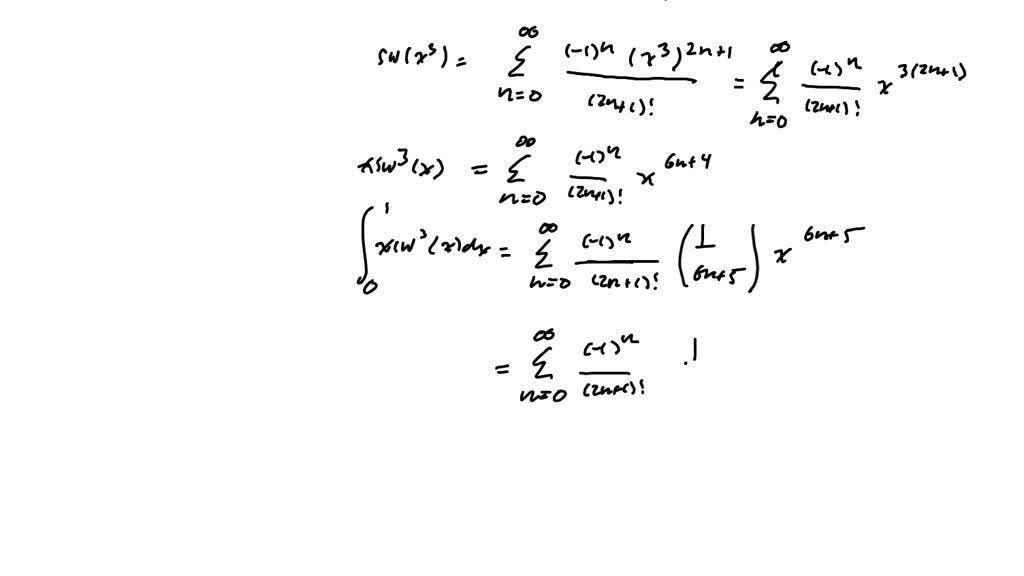 sin(x³) = ∑_{n=0}^{∞} (-1)ⁿ (x³)^{2n+1} / (2n+1)! = ∑_{n=0}^{∞} (-1)ⁿ / (2n+1)! x^{3(2n+1)}
x sin³(x) = ∑_{n=0}^{∞} (-1)ⁿ / (2n+1)! x^{6n+4}
∫₀¹ x sin³(x) dx = ∑_{n=0}^{∞} (-1)ⁿ / (2n+1)! (1 / 6n+5) x^{6n+5}
= ∑_{n=0}^{∞} (-1)ⁿ / (2n+1)! · 1